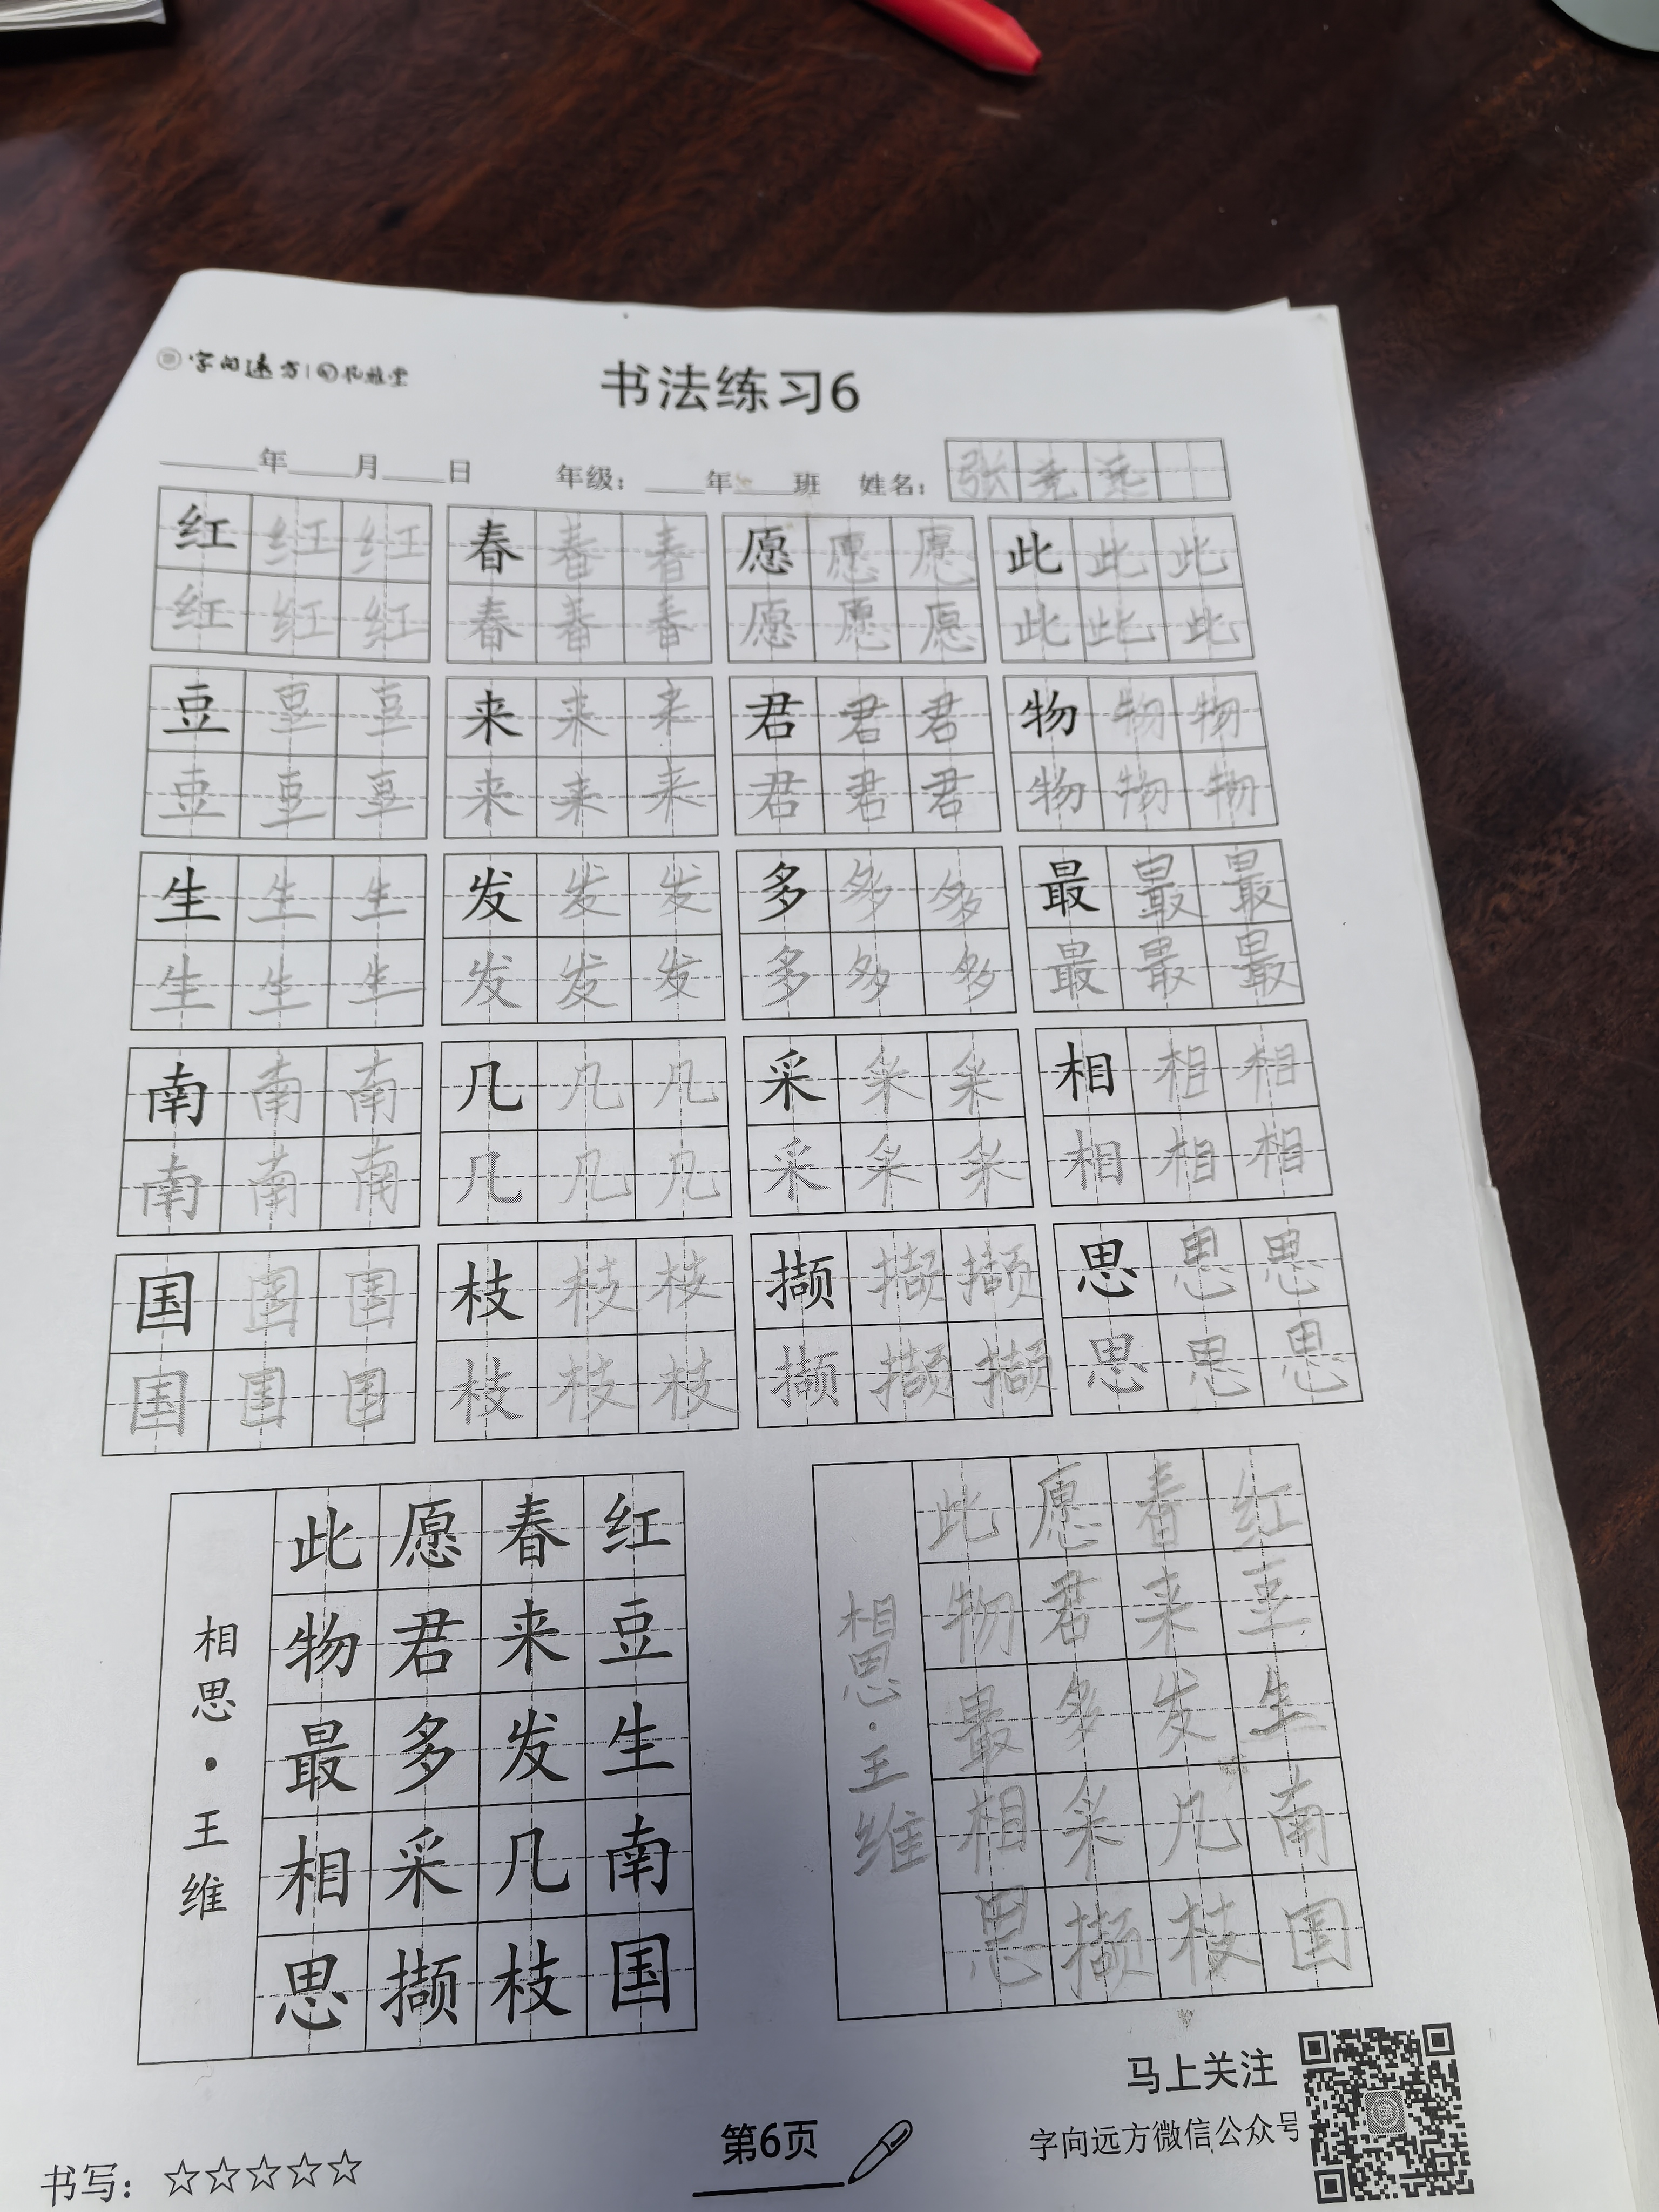 字向远方 | 孔雅堂
书法练习6
年 月 日 年级: 年 班 姓名: 张
红 红 红 春 春 春 愿 愿 愿 此 此 此
红 红 红 春 春 春 愿 愿 愿 此 此 此
豆 豆 豆 来 来 来 君 君 君 物 物 物
豆 豆 豆 来 来 来 君 君 君 物 物 物
生 生 生 发 发 发 多 多 多 最 最 最
生 生 生 发 发 发 多 多 多 最 最 最
南 南 南 几 几 几 采 采 采 相 相 相
南 南 南 几 几 几 采 采 采 相 相 相
国 国 国 枝 枝 枝 撷 撷 撷 思 思 思
国 国 国 枝 枝 枝 撷 撷 撷 思 思 思
红豆生南国
春来发几枝
愿君多采撷
此物最相思
相思·王维
红豆生南国
春来发几枝
愿君多采撷
此物最相思
相思·王维
马上关注
字向远方微信公众号
第6页
书写: ☆☆☆☆☆